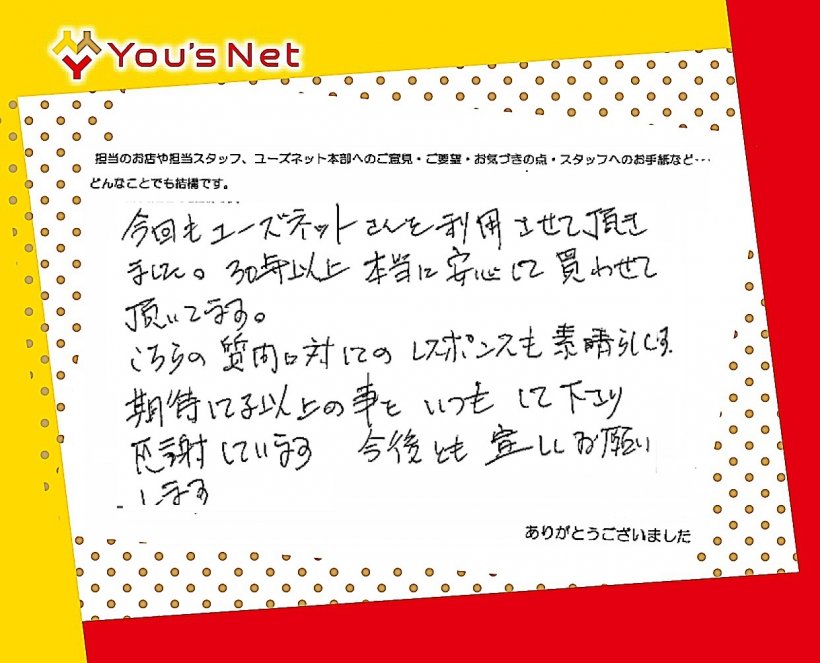 You's Net
担当のお店や担当スタッフ、ユーズネット本部へのご意見・ご要望・お気づきの点・スタッフへのお手紙など・・・
どんなことでも結構です。
今回もユーズネットさんを利用させて頂き
ました。30年以上 本当に安心して買わせて
頂いてます。
こちらの質問に対してのレスポンスも素晴らしいです。
期待してる以上の事を いつも して下さり
感謝しています 今後とも 宜しくお願い
します
ありがとうございました